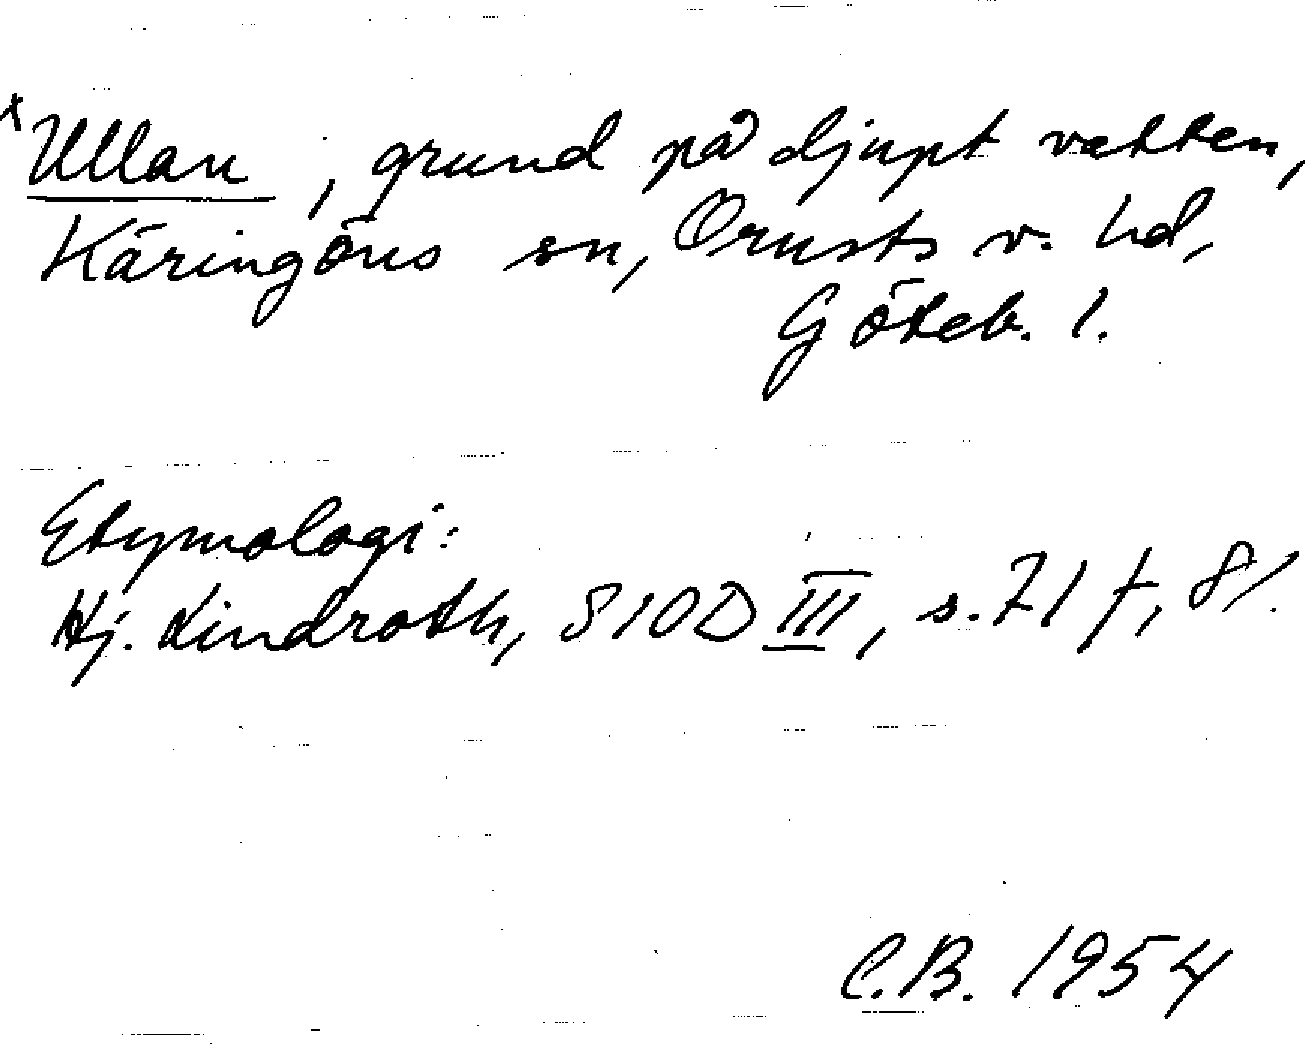 x Ullan, grund på djupt vatten,
Käringöns sn, Orusts v. hd,
Göteb. l.
Etymologi:
Hj. Lindroth, SIOD III, s. 71 f, 81.
C.B. 1954